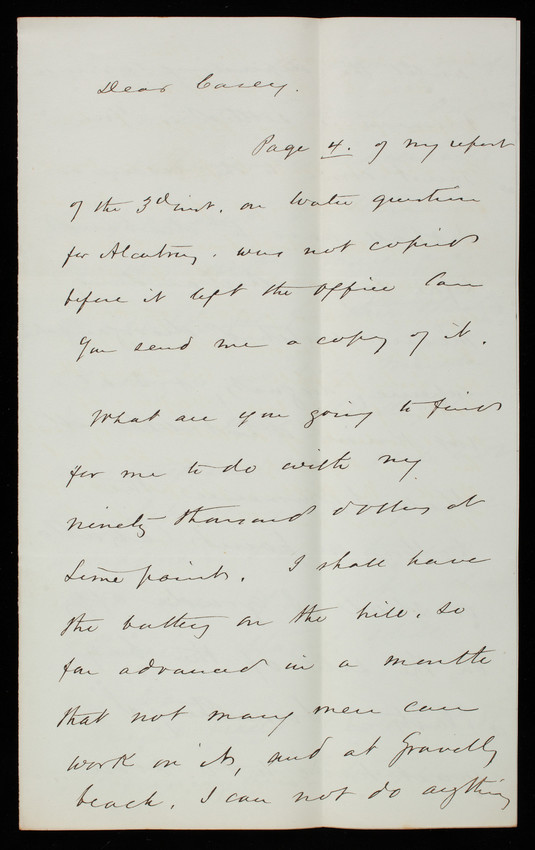 Dear Casey.
Page 4. of my report
of the 3d inst. on water question
for Alcatraz. was not copied
before it left the office Can
you send me a copy of it.
What are you going to find
for me to do with my
ninety thousand dollars at
Lime point. I shall have
the battery on the hill, so
far advanced in a month
that not many men can
work on it, and at Gravelly
beach, I can not do anything